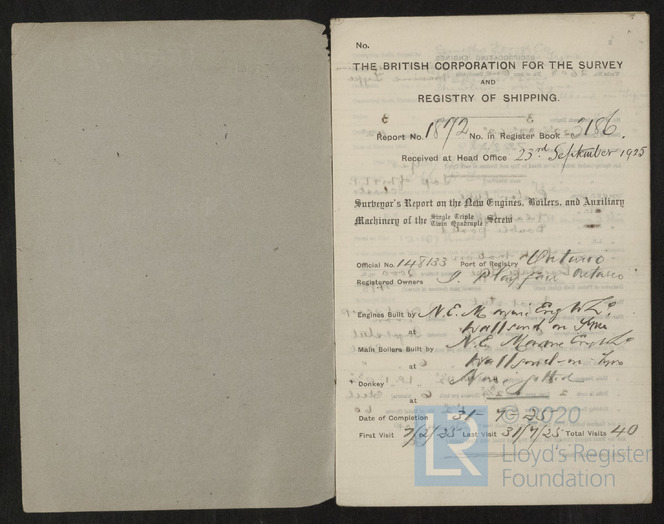 No.
THE BRITISH CORPORATION FOR THE SURVEY
AND
REGISTRY OF SHIPPING.
Report No. 1872 No. in Register Book 3186.
Received at Head Office 23rd September 1925
Surveyor's Report on the New Engines, Boilers, and Auxiliary
Machinery of the Single Triple Twin Quadruple Screw
Official No. 148133 Port of Registry Ontario
Registered Owners J. Playfair Ontario
Engines Built by N.E. Marine Eng Co Ld
at Wallsend on Tyne
Main Boilers Built by N.E. Marine Eng Co Ld
at Wallsend-on Tyne
Donkey "
at
Date of Completion 31-7-25
First Visit 7/2/25 Last Visit 31/7/25 Total Visits 40
© 2020
LR
Lloyd's Register
Foundation